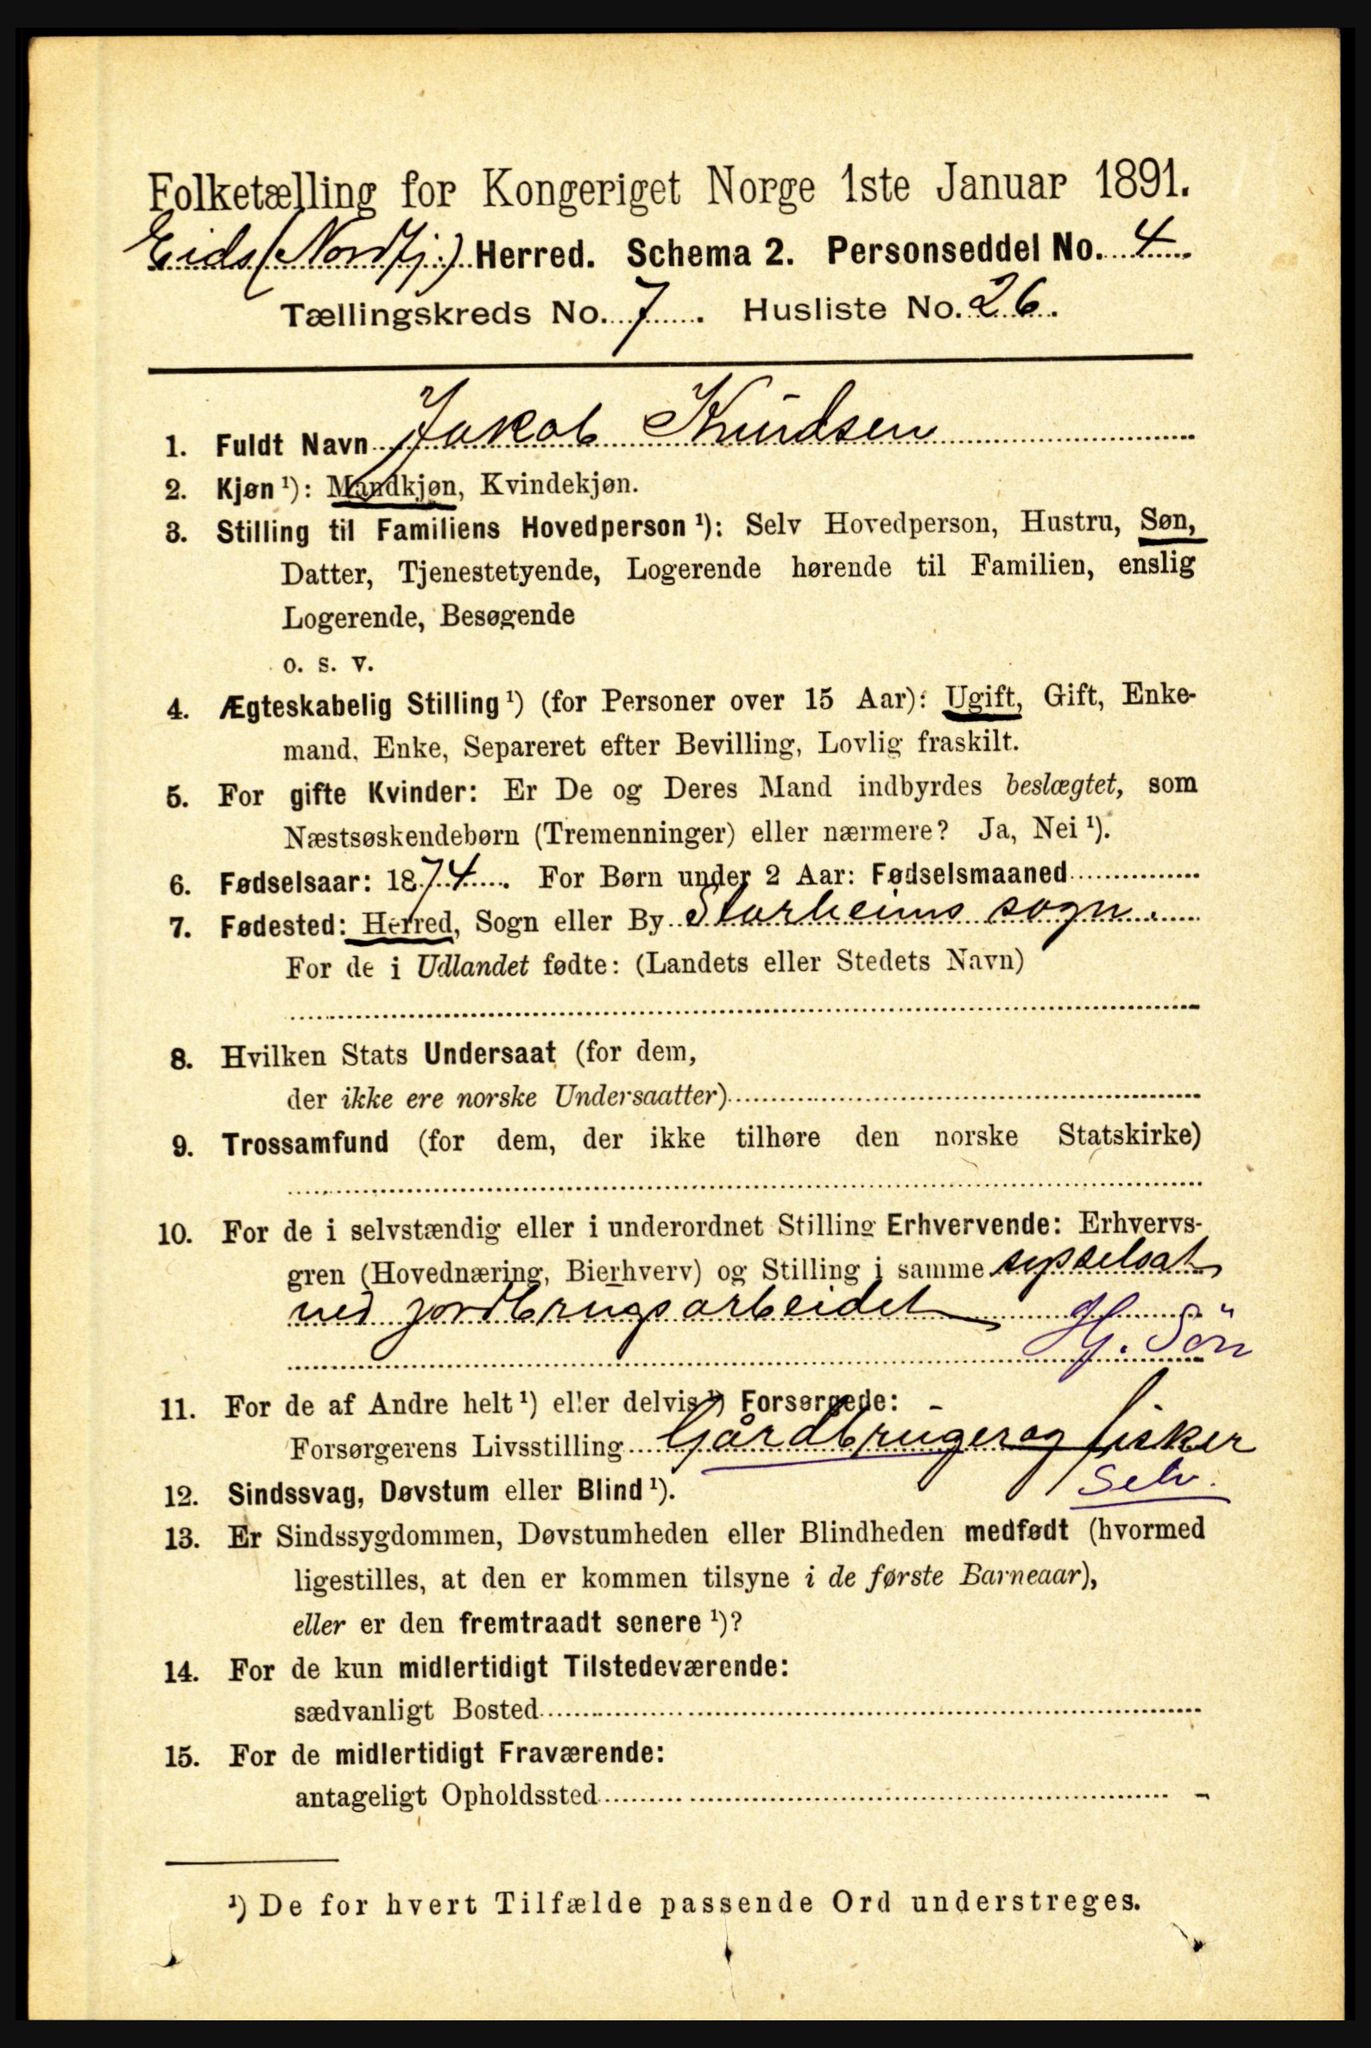 Folketælling for Kongeriget Norge 1ste Januar 1891.
Eids (Nordfj.) Herred. Schema 2. Personseddel No. 4.
Tællingskreds No. 7. Husliste No. 26.
1. Fuldt Navn Jakob Knudsen
2. Kjøn ¹): Mandkjøn, Kvindekjøn.
3. Stilling til Familiens Hovedperson ¹): Selv Hovedperson, Hustru, Søn,
Datter, Tjenestetyende, Logerende hørende til Familien, enslig
Logerende, Besøgende
o. s. v.
4. Ægteskabelig Stilling ¹) (for Personer over 15 Aar): Ugift, Gift, Enke-
mand, Enke, Separeret efter Bevilling, Lovlig fraskilt.
5. For gifte Kvinder: Er De og Deres Mand indbyrdes beslægtet, som
Næstsøskendebørn (Tremenninger) eller nærmere? Ja, Nei ¹).
6. Fødselsaar: 1874. For Børn under 2 Aar: Fødselsmaaned
7. Fødested: Herred, Sogn eller By Starheims sogn.
For de i Udlandet fødte: (Landets eller Stedets Navn)
8. Hvilken Stats Undersaat (for dem,
der ikke ere norske Undersaatter)
9. Trossamfund (for dem, der ikke tilhøre den norske Statskirke)
10. For de i selvstændig eller i underordnet Stilling Erhvervende: Erhvervs-
gren (Hovednæring, Bierhverv) og Stilling i samme sysselsat
ved jordbrugsarbeidet
H. Sön
11. For de af Andre helt ¹) eller delvis ¹) Forsørgede:
Forsørgerens Livsstilling Gårdbruger og fisker
Selv.
12. Sindssvag, Døvstum eller Blind ¹).
13. Er Sindssygdommen, Døvstumheden eller Blindheden medfødt (hvormed
ligestilles, at den er kommen tilsyne i de første Barneaar),
eller er den fremtraadt senere ¹)?
14. For de kun midlertidigt Tilstedeværende:
sædvanligt Bosted
15. For de midlertidigt Fraværende:
antageligt Opholdssted
¹) De for hvert Tilfælde passende Ord understreges.